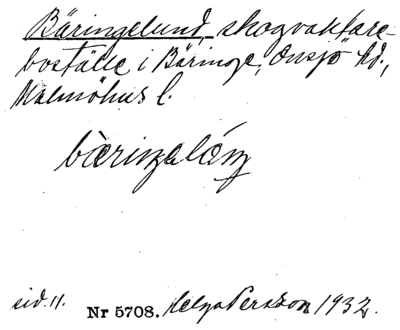 Bäringelund, skogvaktare-
boställe i Bäringe, Onsjö hd.,
Malmöhus l.
bæ̀riŋəlǽnŋ
sid. 11. Nr 5708. Helga Persson 1932.